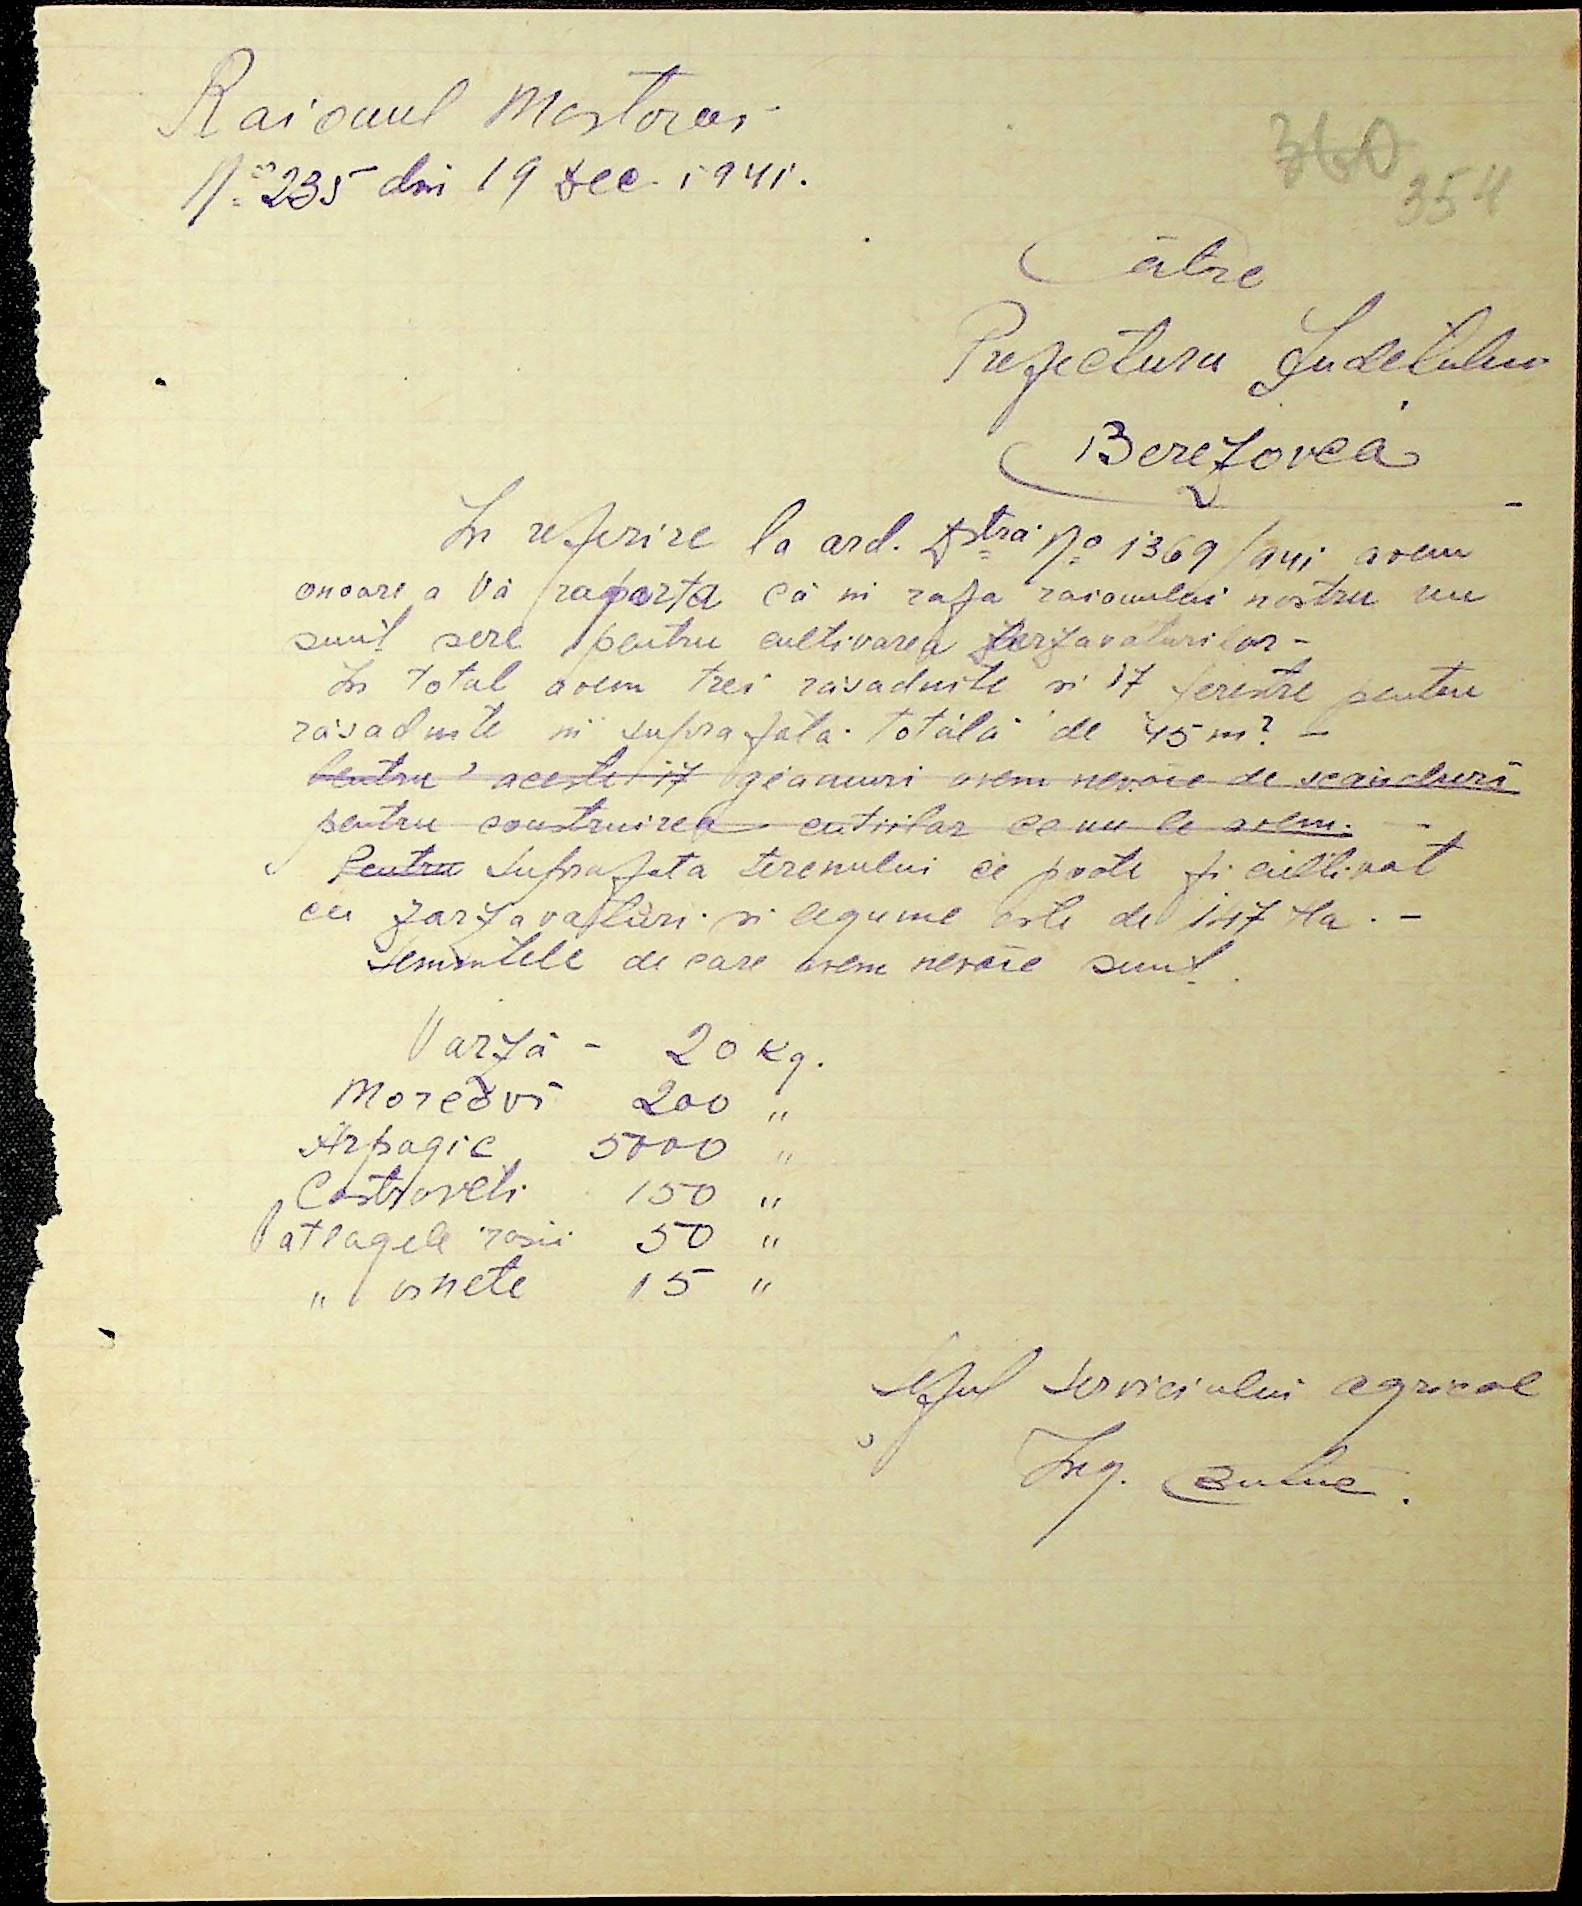 Raionul Mostovoi
No 235 din 19 Dec. 1941.
360
354
Către
Prefectura Judetului
Berezovca
In referire la ord. Dtră No 1369/941 avem
onoare a Vă raporta că in raza raionului nostru nu
sunt sere pentru cultivarea zarzavaturilor -
In total avem trei răsadnite si 17 ferestre pentru
răsadnite in suprafata totală de 45 m². -
Pentru aceste 17 geamuri avem nevoie de scânduri
pentru construirea cutiilor ce nu le avem. -
Pentru Suprafata terenului ce poate fi cultivat
cu zarzavaturi si legume este de 147 Ha. -
Semintele de care avem nevoie sunt.
Varză - 20 kg.
Morcovi 200 "
Arpagic 5000 "
Castraveti 150 "
Patlagele rosii 50 "
" vinete 15 "
Seful Serviciului agricol
Ing.